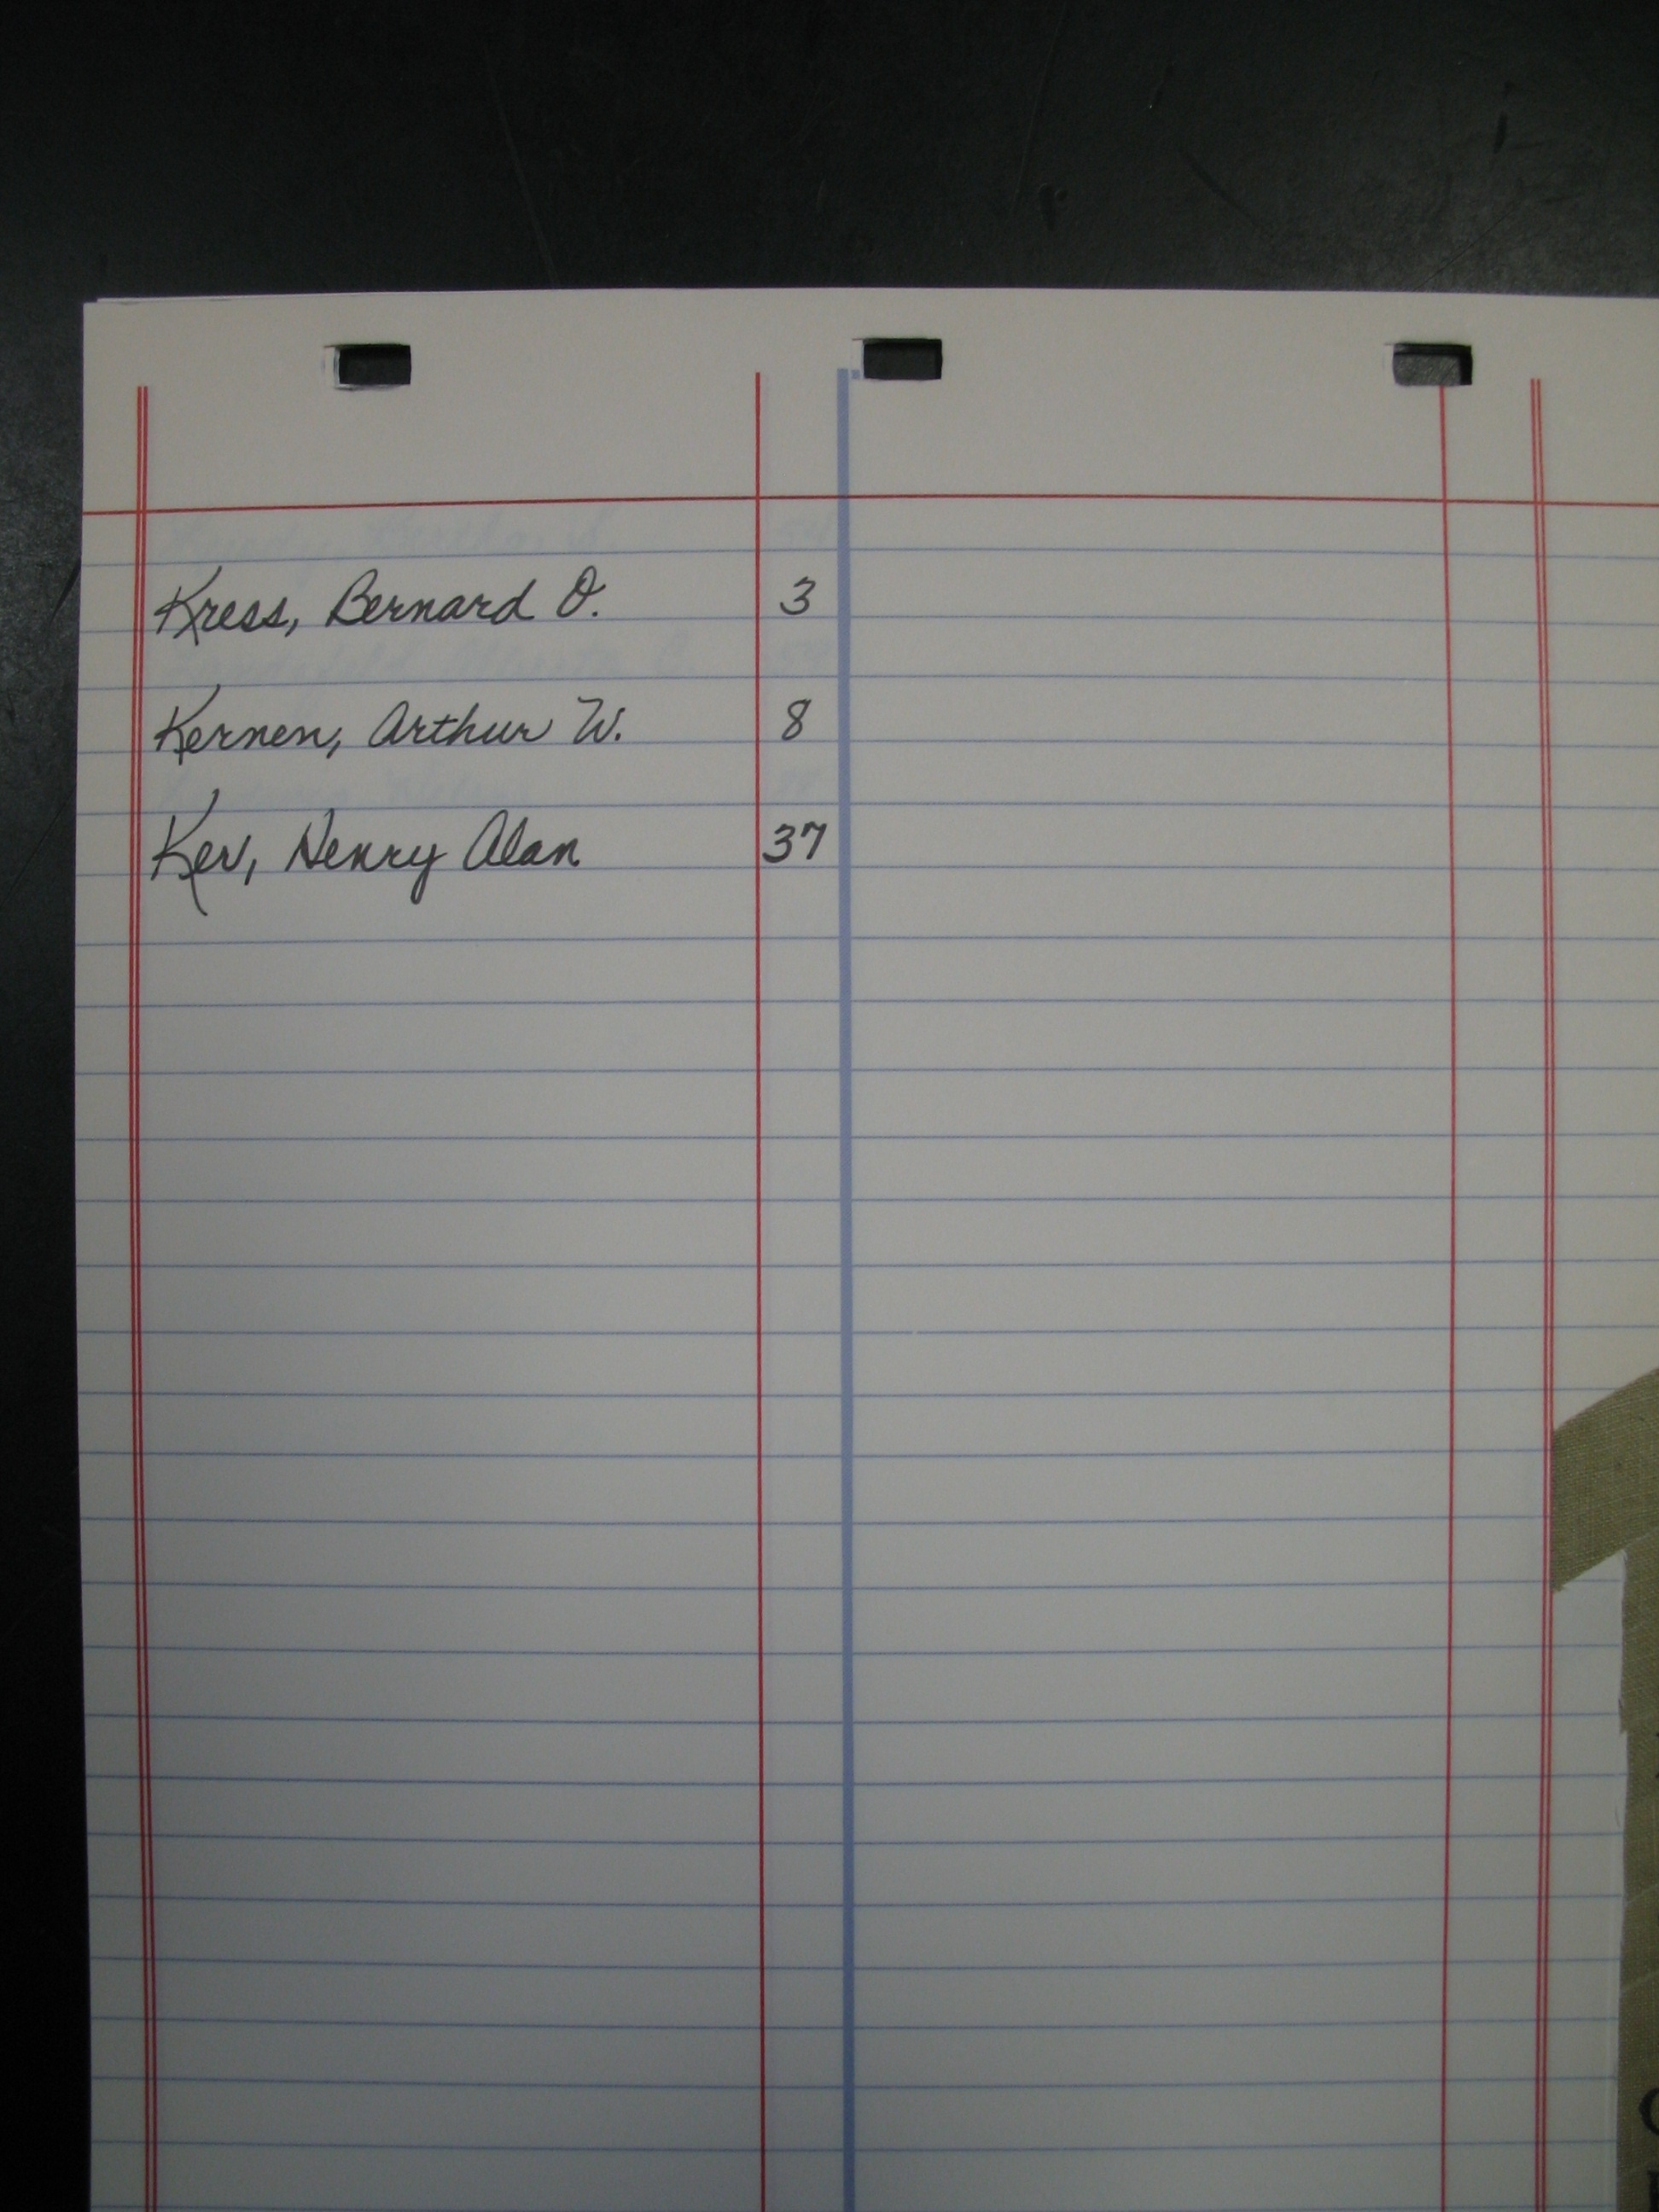 Kress, Bernard O. 3
Kernen, Arthur W. 8
Kev, Henry Alan 37